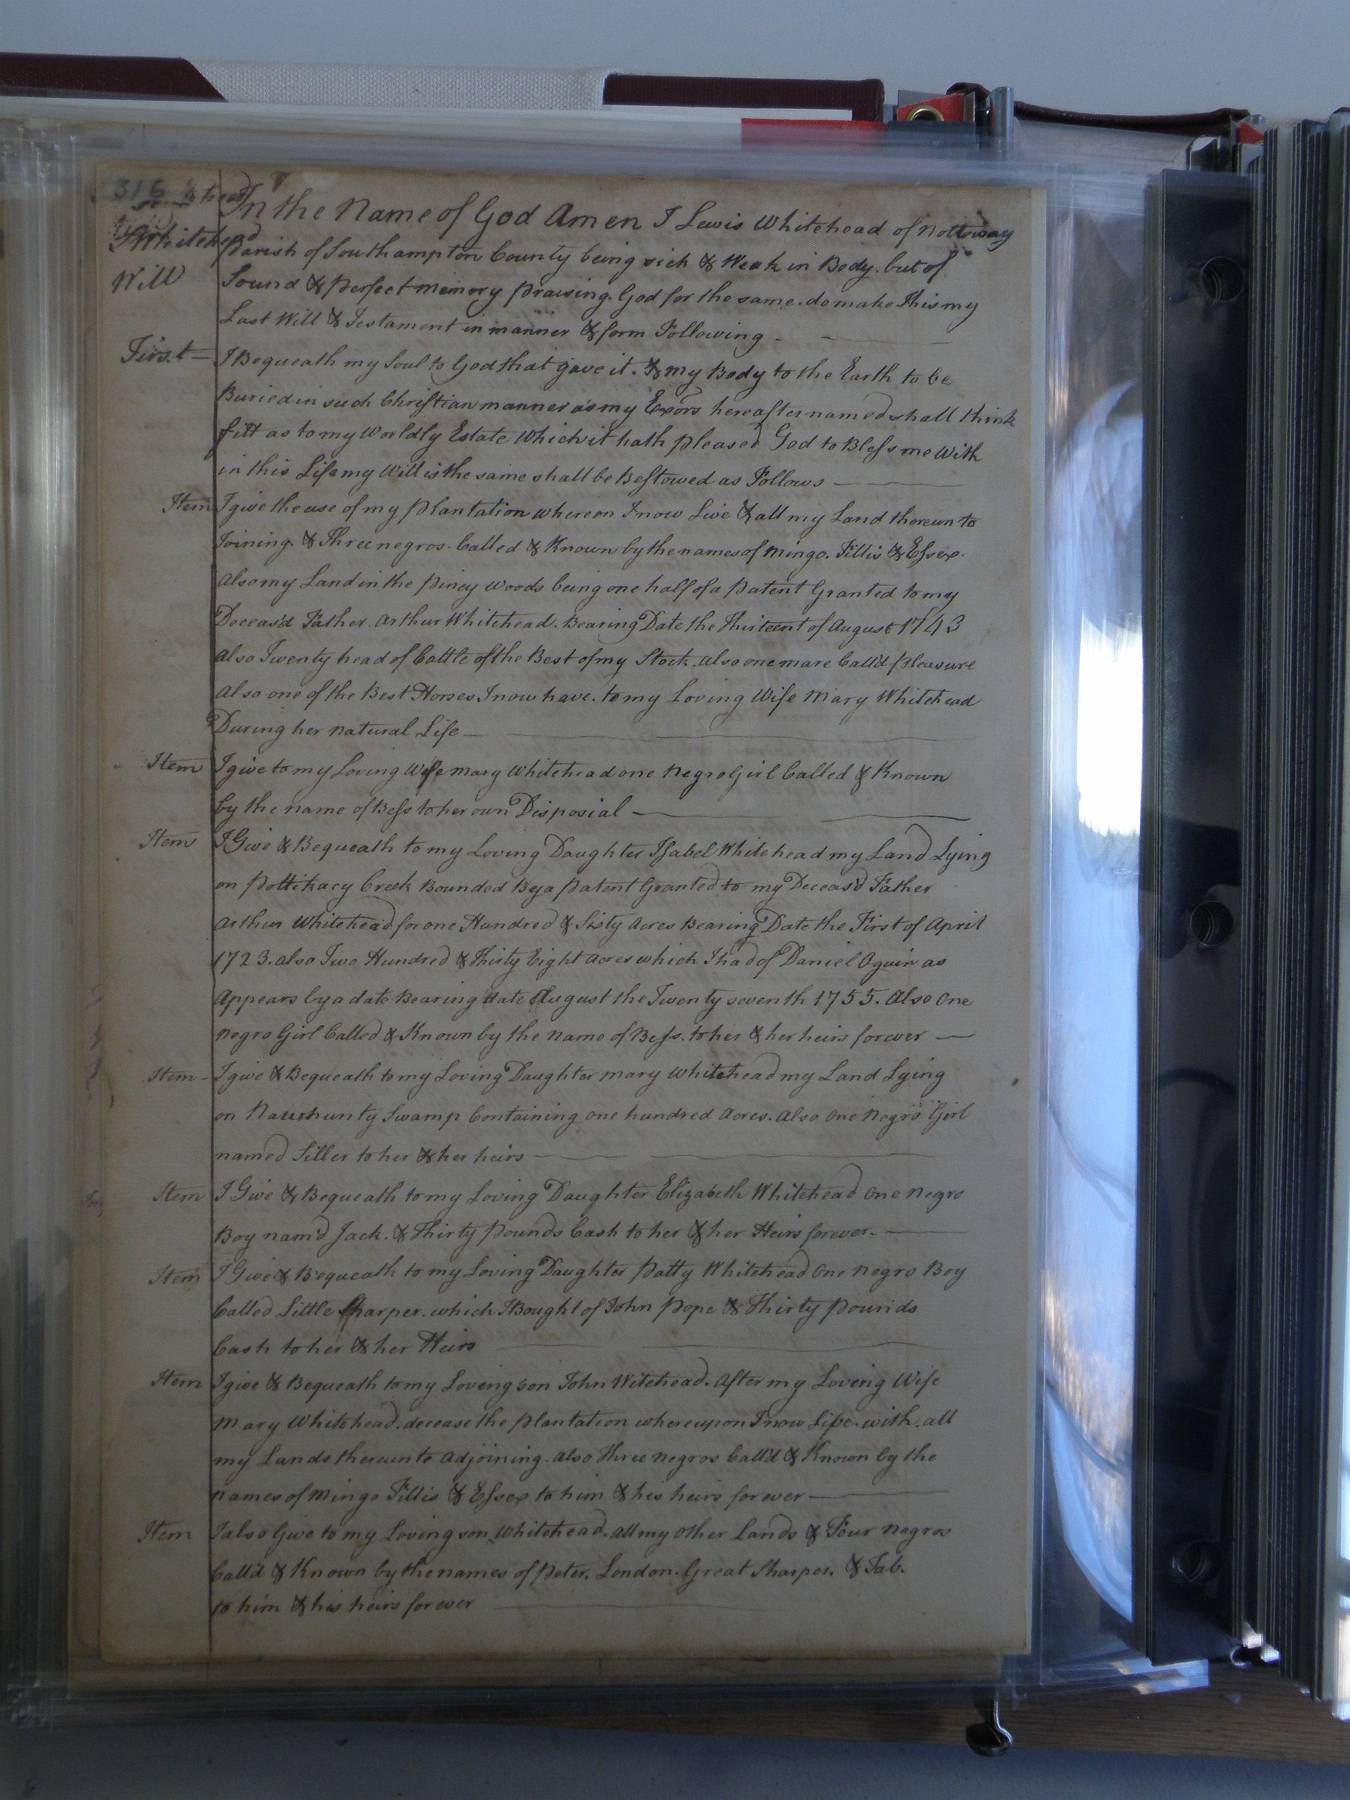 316
Whitehead
Will
In the Name of God Amen I Lewis Whitehead of Nottoway
Parish of Southampton County being sick & Weak in Body. but of
Sound & perfect memory praising. God for the same. do make this my
Last Will & Testament in manner & form Following -
First - I Bequeath my Soul to God that gave it. & my Body to the Earth to be
Buried in such Christian manner as my Exors hereafter named shall think
fitt as to my Worldly Estate which it hath pleased God to Bless me with
in this Life my Will is the same shall be Bestowed as Follows
Item I give the use of my plantation whereon I now Live & all my Land thereunto
Joining. & Three negros. Called & Known by the names of Mingo. Fillis & Essex.
also my Land in the piney woods being one half of a patent Granted to my
Deceas'd Father. Arthur Whitehead. Bearing Date the Thirteent of August 1743
also Twenty head of Cattle of the Best of my Stock. also one mare Call'd pleasure
also one of the Best Horses I now have. to my Loving Wife Mary Whitehead
During her natural Life
Item I give to my Loving Wife mary Whitehead one Negro Girl Called & Known
by the name of Bess to her own Disposial
Item I Give & Bequeath to my Loving Daughter Isabel Whitehead my Land Lying
on Creek Bounded By a patent Granted to my Deceas'd Father
Arthur Whitehead for one Hundred & Sixty Acres Bearing Date the First of April
1723. also Two Hundred & Thirty Eight acres which I had of Daniel Oquin as
Appears by a date Bearing date August the Twenty seventh 1755. also one
negro Girl Called & Known by the name of Bess. to her & her heirs forever
Item - I give & Bequeath to my Loving Daughter mary Whitehead my Land Lying
on Swamp Containing one hundred Acres. also one Negro Girl
named Siller to her & her heirs
Item I Give & Bequeath to my Loving Daughter Elizabeth Whitehead one negro
Boy nam'd Jack. & Thirty pounds Cash to her & her Heirs forever.
Item I Give & Bequeath to my Loving Daughter patty Whitehead one negro Boy
Called Little Sharper. which I Bought of John pope & Thirty pounds
Cash to her & her Heirs
Item I give & Bequeath to my Loveing son John Witehead. After my Loveing Wife
Mary Whitehead. decease the plantation whereupon I now Live. with. all
my Lands thereunto adjoining. also three negros Call'd & Known by the
names of Mingo Fillis & Essex to him & his heirs forever
Item I also Give to my Loving son Whitehead. all my other Lands & Four negros
Call'd & Known by the names of peter. London. Great Sharper. & Tab.
to him & his heirs forever